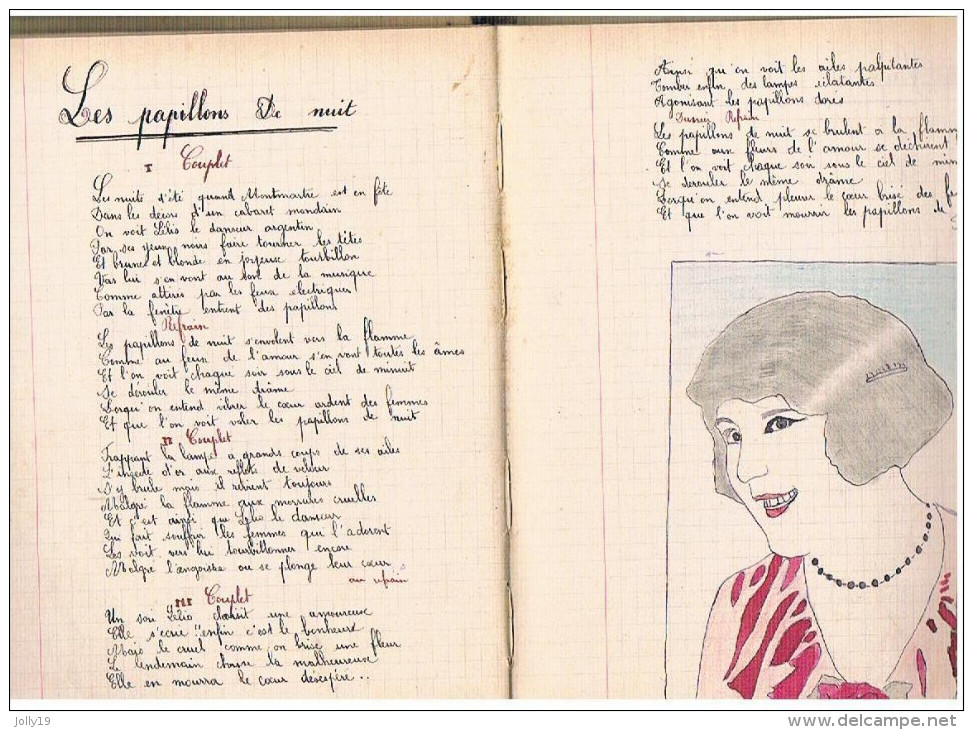 Les papillons De nuit
I Couplet
Les nuits d'été quand Montmartre est en fête
Dans les décors d'un cabaret mondain
On voit Lélio le danseur argentin
Par ses yeux noirs faire tourner les têtes
Et brunes et blonde en joyeuse tourbillon
Vas lui s'en vont au son de la musique
Comme attirés par les feux electriques
Par la fenêtre entrent des papillons
Refrain
Les papillons de nuit s'envolent vers la flamme
Comme au feux de l'amour s'en vont toutes les âmes
Et l'on voit chaque soir sous le ciel de minuit
Se dérouler le même drâme
Lorqu'on entend vibrer le cœur ardent des femmes
Et que l'on voit voler les papillons de nuit
II Couplet
Frappant la lampe a grands coups de ses ailes
L'insecte d'or aux reflets de velour
S'y brule mais il revient toujours
Malgré la flamme aux morsures cruelles
Et c'est ainsi que Lélio le danseur
Qui fait souffrir les femmes qui l'adorent
Les voit vers lui tourbillonner encore
Malgré l'angoisse ou se plonge leur cœur
au refrain
III Couplet
Un soir Lélio choisit une amoureuse
Elle s'écrie "enfin c'est le bonheur
Mais le cruel comme on brise une fleur
Le lendemain chasse la malheureuse
Elle en mourra le cœur désespéré..
Ainsi qu'on voit les ailes palpitantes
Tomber enfin des lampes éclatantes
Agonisant les papillons dorés
Dernier Refrain
Les papillons de nuit se brulent a la flamm
Comme aux fleurs de l'amour se déchirent
Et l'on voit chaque soir sous le ciel de min
Se derouler le même drâme
Lorqu'on entend pleurer le cœur brisé des fe
Et que l'on voit mourrir les papillons de
jolly19
www.delcampe.net